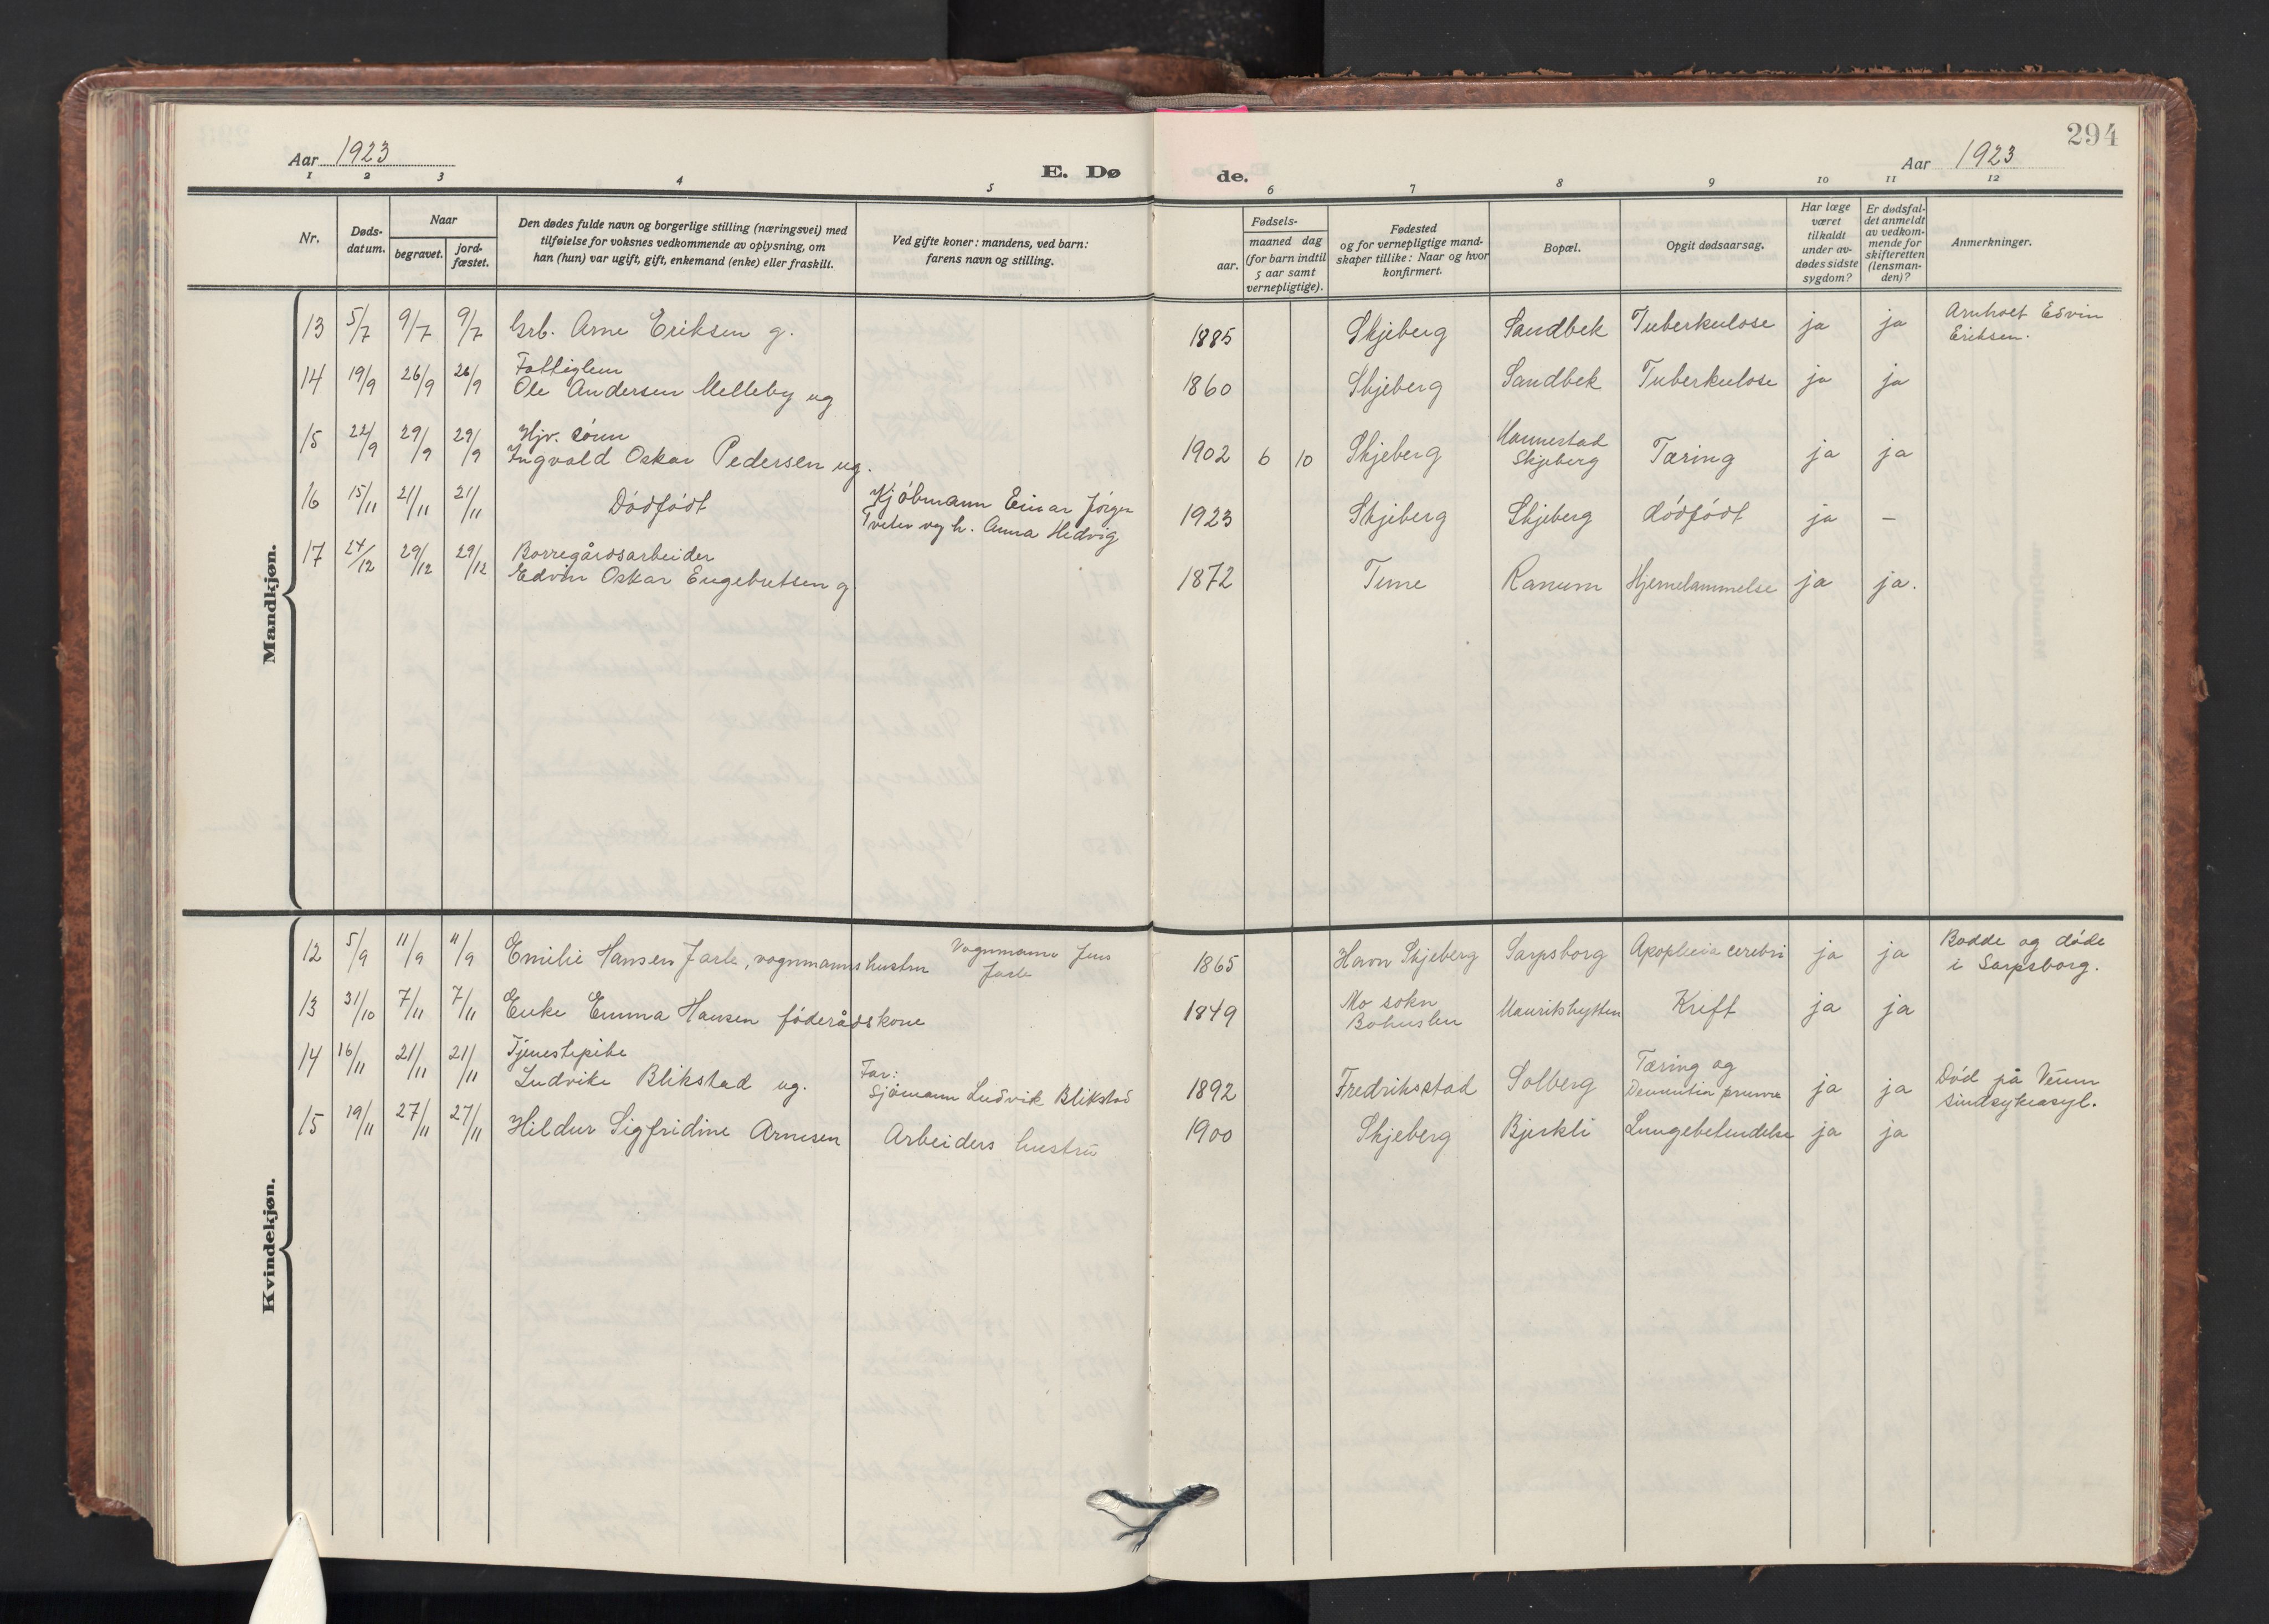 294
Aar 1923
E. Dø
de.
Aar 1923
1 2 3 4 5 6 7 8 9 10 11 12
Nr.
Døds-
datum.
Naar
begravet.
jord-
fæstet.
Den dødes fulde navn og borgerlige stilling (næringsvei) med
tilføielse for voksnes vedkommende av oplysning, om
han (hun) var ugift, gift, enkemand (enke) eller fraskilt.
Ved gifte koner: mandens, ved barn:
farens navn og stilling.
Fødsels-
aar.
maaned dag
(for barn indtil
5 aar samt
vernepligtige).
Fødested
og for vernepligtige mand-
skaper tillike: Naar og hvor
konfirmert.
Bopæl.
Opgit dødsaarsag.
Har læge
været
tilkaldt
under av-
dødes sidste
sygdom?
Er dødsfal-
det anmeldt
av vedkom-
mende for
skifteretten
(lensman-
den)?
Anmerkninger.
Mandkjøn.
13 5/7 9/7 9/7 Grb. Arne Eriksen g. 1885 Skjeberg Sandbek Tuberkulose ja ja Arnholt Edvin
Eriksen.
14 19/9 26/9 26/9 Fattiglem
Ole Andersen Melleby ug 1860 Skjeberg Sandbek Tuberkulose ja ja
15 22/9 29/9 29/9 Hjv. sønn
Ingvald Oskar Pedersen ug. 1902 6 10 Skjeberg Hannestad
Skjeberg Tæring ja ja
16 15/11 21/11 21/11 Dödfödt Kjöbmann Einar Jörgen
Tveter og h. Anna Hedvig 1923 Skjeberg Skjeberg dödfödt ja –
17 24/12 29/12 29/12 Borregårdsarbeider
Edvin Oskar Engebretsen g. 1872 Tune Ranum Hjernelammelse ja ja.
Kvindekjøn.
12 5/9 11/9 11/9 Emilie Hansen Jarle, vognmannshustru Vognmann Jens
Jarle 1865 Havn Skjeberg Sarpsborg Apoplexia cerebri ja ja Bodde og döde
i Sarpsborg.
13 31/10 7/11 7/11 Enke Emma Hansen föderådskone 1849 Mo sokn
Bohuslen Mauritshytten Kreft ja ja
14 16/11 21/11 21/11 Tjenestepike
Ludvike Blikstad ug. Far:
Sjömann Ludvik Blikstad 1892 Fredriksstad Solberg Tæring og
Dementia ja ja Död på Veum
sindsykeasyl.
15 19/11 27/11 27/11 Hildur Sigfridine Arnesen Arbeiders hustru 1900 Skjeberg Bjerkli Lungebetendelse ja ja